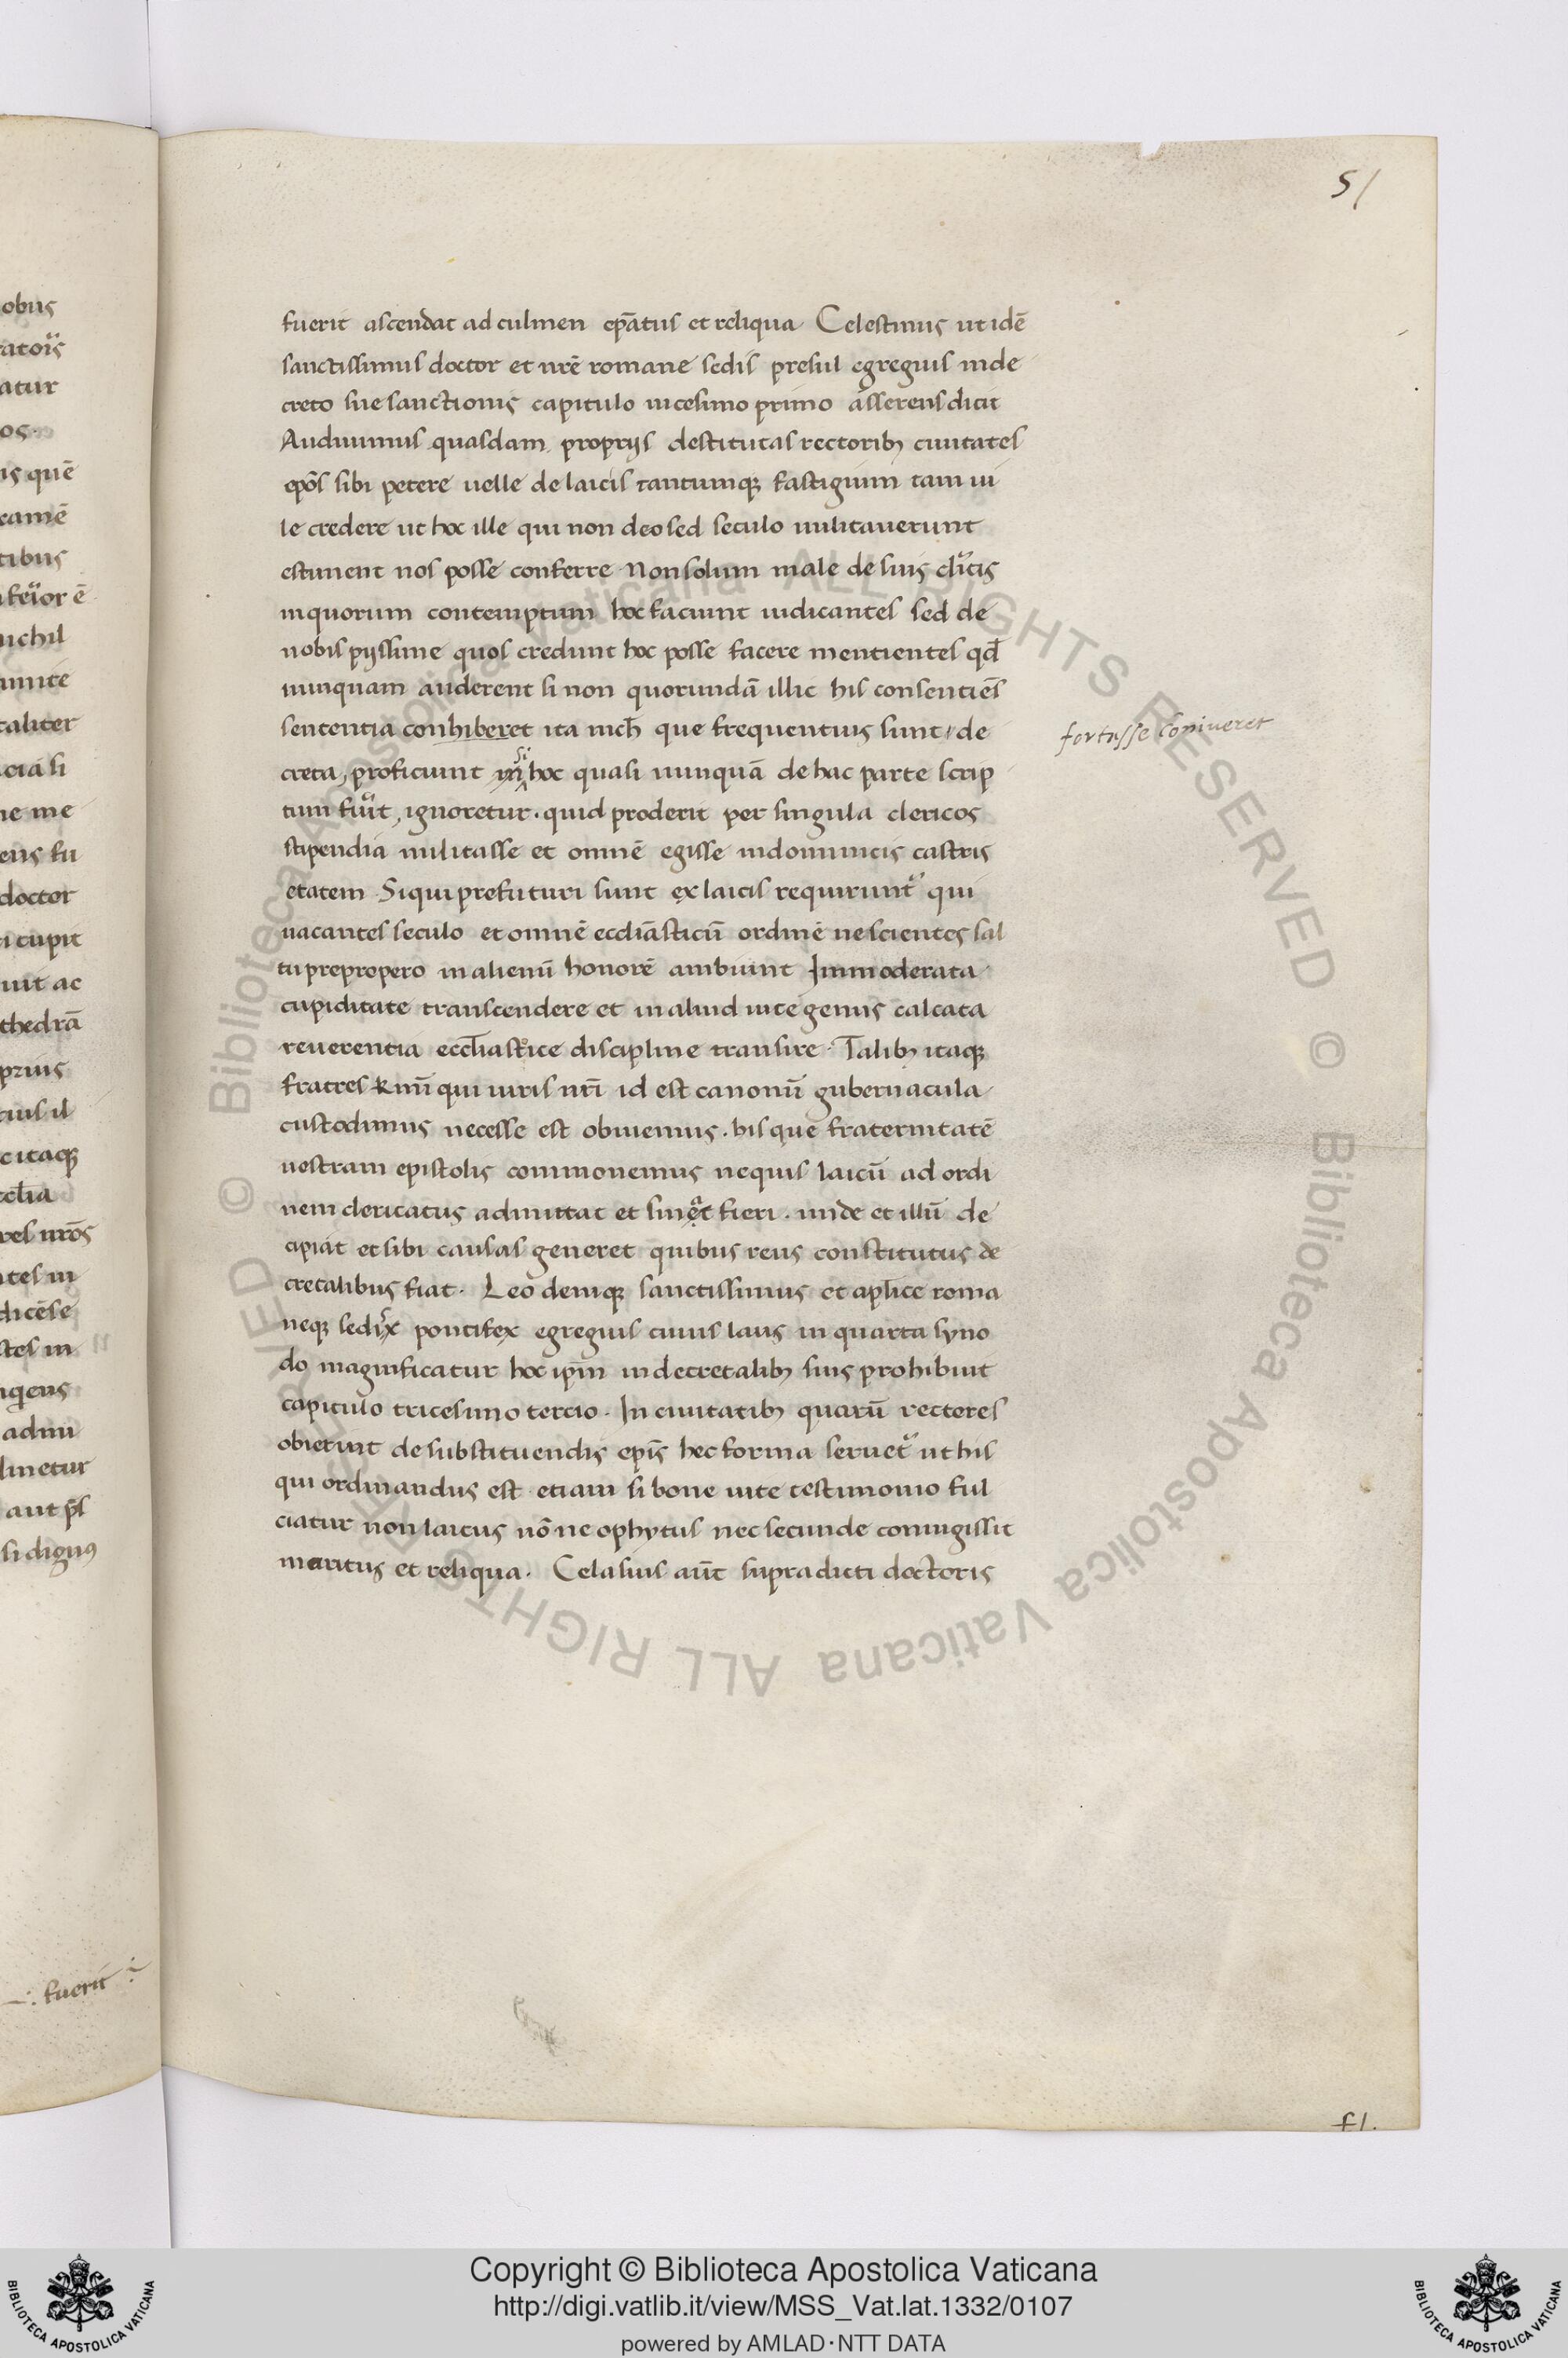 51
fuerit ascendat ad culmen ep̄atus et reliqua Celestinus ut idē
sanctissimus doctor et nr̄e romane sedis presul egregius inde
creto sue sanctionis capitulo uicesimo primo asserens dicit
Audiuimus quasdam proprijs destitutas rectoribꝫ ciuitates
ep̄os sibi petere uelle de laicis tantumqꝫ fastigium tam ui
le credere ut hoc ille qui non deo sed seculo militauerunt
estiment nos posse conferre Non solum male de suis cľicis
inquorum contemptum hoc faciunt iudicantes sed de
nobis pijssime quos credunt hoc posse facere mentientes qd̄
nunquam auderent si non quorundā illic his consentiēs
sententia conhiberet ita nich̄ que frequentius sunt de
creta proficiunt hoc quasi nunquā de hac parte scrip
tum fuit, ignoretur. quid proderit per singula clericos
stipendia militasse et omnē egisse indominicis castris
etatem. Siqui prefuturi sunt ex laicis requirunt qui
uacantes seculo et omnē eccl̄iasticū ordinē nescientes sal
tu prepropero in alienū honorē ambiunt Immoderata
cupiditate transcendere et in aliud uite genus calcata
reuerentia eccl̄iastice discipline transire. Talibꝫ itaqꝫ
fratres kmī qui iuris nr̄i id est canonū gubernacula
custodimus necesse est obuiemus. bis que fraternitatē
uestram epistolis commonemus nequis laicū ad ordi
nem clericatus admittat et sinet fieri. unde et illū de
cipiat et sibi causas generet quibus reus constitutus de
cretalibus fiat. Leo deniqꝫ sanctissimus et apl̄ice roma
neqꝫ sedis pontifex egregius cuius laus in quarta syno
do magnificatur hoc ip̄m in decretalibꝫ suis prohibuit
capitulo tricesimo tercio. In ciuitatibꝫ quarū rectores
obierint de substituendis ep̄is hec forma seruet ut his
qui ordinandus est etiam si bone uite testimonio ful
ciatur non laicus nō neophytus nec secunde coniugissit
maritus et reliqua. Celasius aūt supradicti doctoris
fortasse coniueret
fuerit
f1.
Copyright © Biblioteca Apostolica Vaticana
http://digi.vatlib.it/view/MSS_Vat.lat.1332/0107
powered by AMLAD·NTT DATA